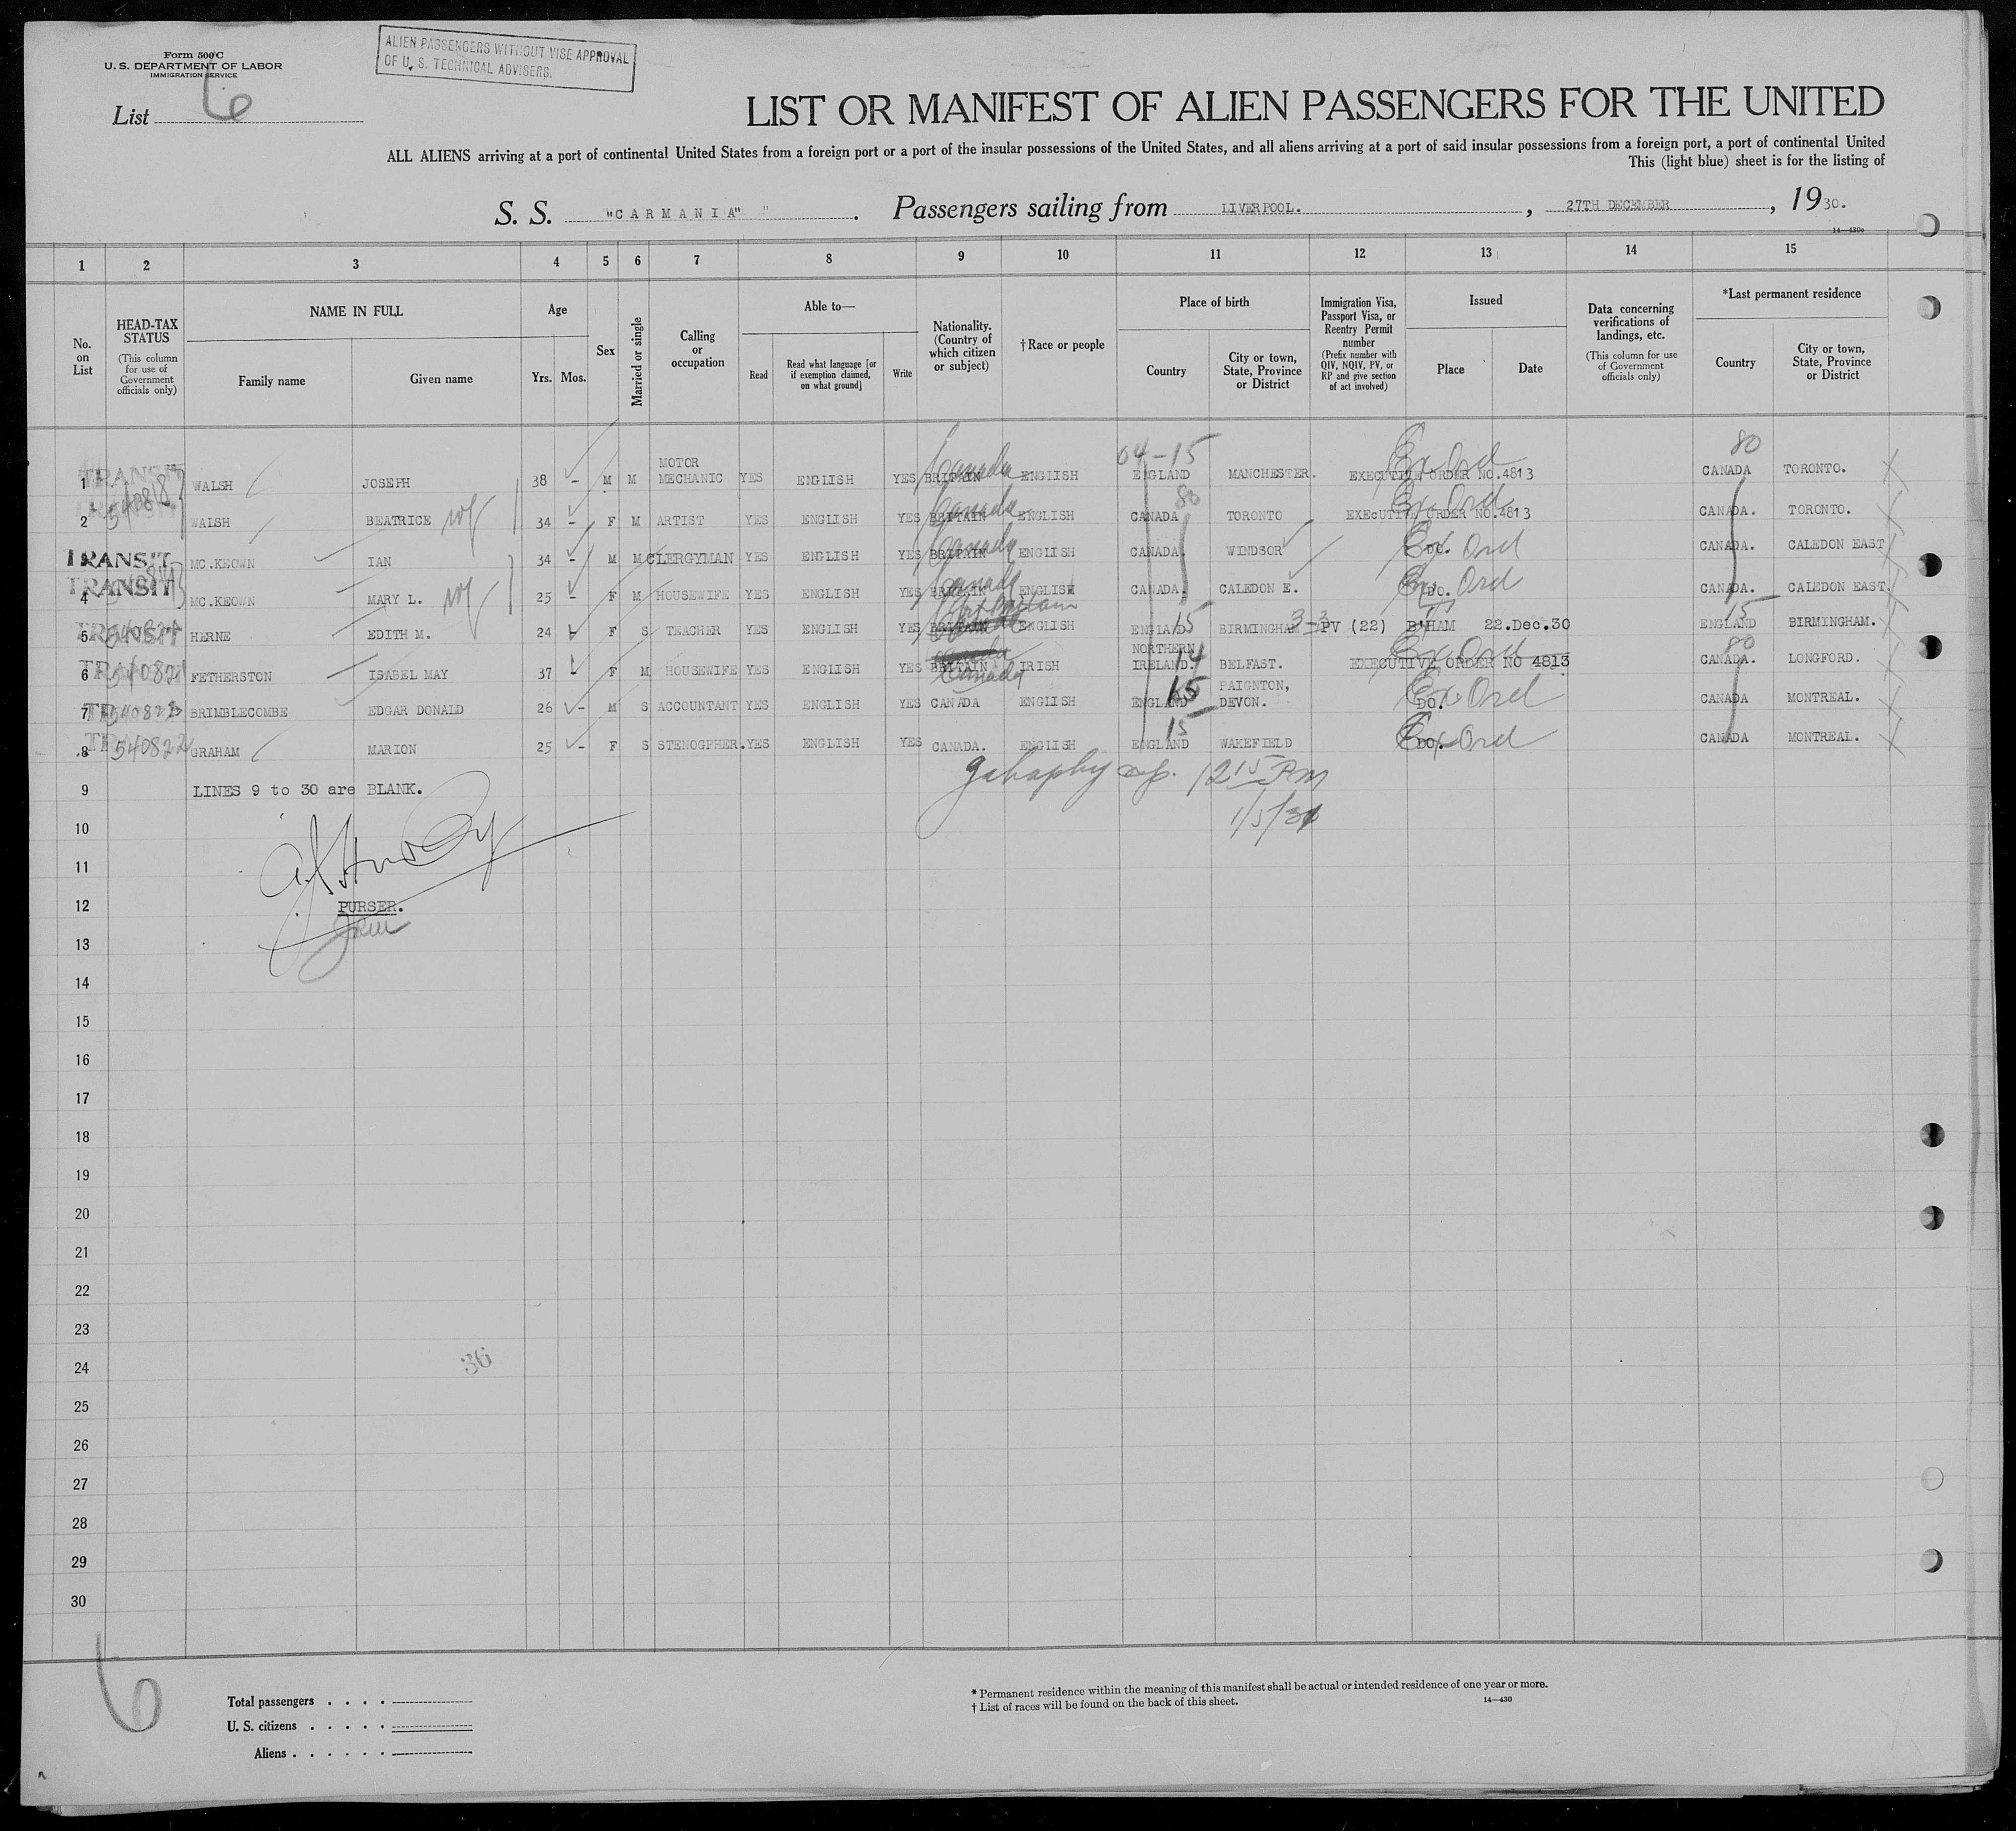 Form 500 C
U. S. DEPARTMENT OF LABOR
IMMIGRATION SERVICE
ALIEN PASSENGERS WITHOUT VISE APPROVAL
OF U. S. TECHNICAL ADVISERS.
List 6
LIST OR MANIFEST OF ALIEN PASSENGERS FOR THE UNITED
ALL ALIENS arriving at a port of continental United States from a foreign port or a port of the insular possessions of the United States, and all aliens arriving at a port of said insular possessions from a foreign port, a port of continental United
This (light blue) sheet is for the listing of
S. S. "CARMANIA" . Passengers sailing from LIVERPOOL. , 27TH DECEMBER , 1930.
14—430c
1 2 3 4 5 6 7 8 9 10 11 12 13 14 15
No. on List
HEAD-TAX STATUS (This column for use of Government officials only)
NAME IN FULL
Family name Given name
Age
Yrs. Mos.
Sex
Married or single
Calling or occupation
Able to—
Read
Read what language [or if exemption claimed, on what ground]
Write
Nationality. (Country of which citizen or subject)
† Race or people
Place of birth
Country
City or town, State, Province or District
Immigration Visa, Passport Visa, or Reentry Permit number (Prefix number with QIV, NQIV, PV, or RP and give section of act involved)
Issued
Place Date
Data concerning verifications of landings, etc. (This column for use of Government officials only)
*Last permanent residence
Country
City or town, State, Province or District
04-15 Ex Ord 80
1 TRANSIT WALSH JOSEPH 38 - M M MOTOR MECHANIC YES ENGLISH YES BRITAIN Canada ENGLISH ENGLAND MANCHESTER. EXECUTIVE ORDER NO.4813 CANADA TORONTO.
2 WALSH BEATRICE wf 34 - F M ARTIST YES ENGLISH YES BRITAIN Canada ENGLISH CANADA 80 TORONTO EXECUTIVE ORDER NO.4813 Ex Ord CANADA. TORONTO.
3 TRANSIT MC.KEOWN IAN 34 - M M CLERGYMAN YES ENGLISH YES BRITAIN Canada ENGLISH CANADA. WINDSOR DO. Ex Ord CANADA. CALEDON EAST
4 TRANSIT MC.KEOWN MARY L. wf 25 - F M HOUSEWIFE YES ENGLISH YES BRITAIN Canada ENGLISH CANADA. CALEDON E. DO. Ex Ord CANADA. CALEDON EAST.
5 HERNE EDITH M. 24 F S TEACHER YES ENGLISH YES BRITAIN ENGLISH ENGLAND 15 BIRMINGHAM 3-3 PV (22) B'HAM 22.Dec.30 ENGLAND 15 BIRMINGHAM.
6 FETHERSTON ISABEL MAY 37 - F M HOUSEWIFE YES ENGLISH YES BRITAIN Canada IRISH NORTHERN IRELAND. 14 BELFAST. EXECUTIVE ORDER NO 4813 Ex Ord CANADA. 80 LONGFORD.
7 540822 BRIMBLECOMBE EDGAR DONALD 26 - M S ACCOUNTANT YES ENGLISH YES CANADA ENGLISH ENGLAND 15 PAIGNTON, DEVON. DO. Ex Ord CANADA MONTREAL.
8 540822 GRAHAM MARION 25 - F S STENOGPHER. YES ENGLISH YES CANADA. ENGLISH ENGLAND 15 WAKEFIELD DO. Ex Ord CANADA MONTREAL.
9 LINES 9 to 30 are BLANK. 12 15 PM
10 1/5/31
11
12 PURSER.
13
14
15
16
17
18
19
20
21
22
23
24 36
25
26
27
28
29
30
6
Total passengers . . . .
U. S. citizens . . . . .
Aliens . . . . . .
* Permanent residence within the meaning of this manifest shall be actual or intended residence of one year or more.
† List of races will be found on the back of this sheet.
14—430